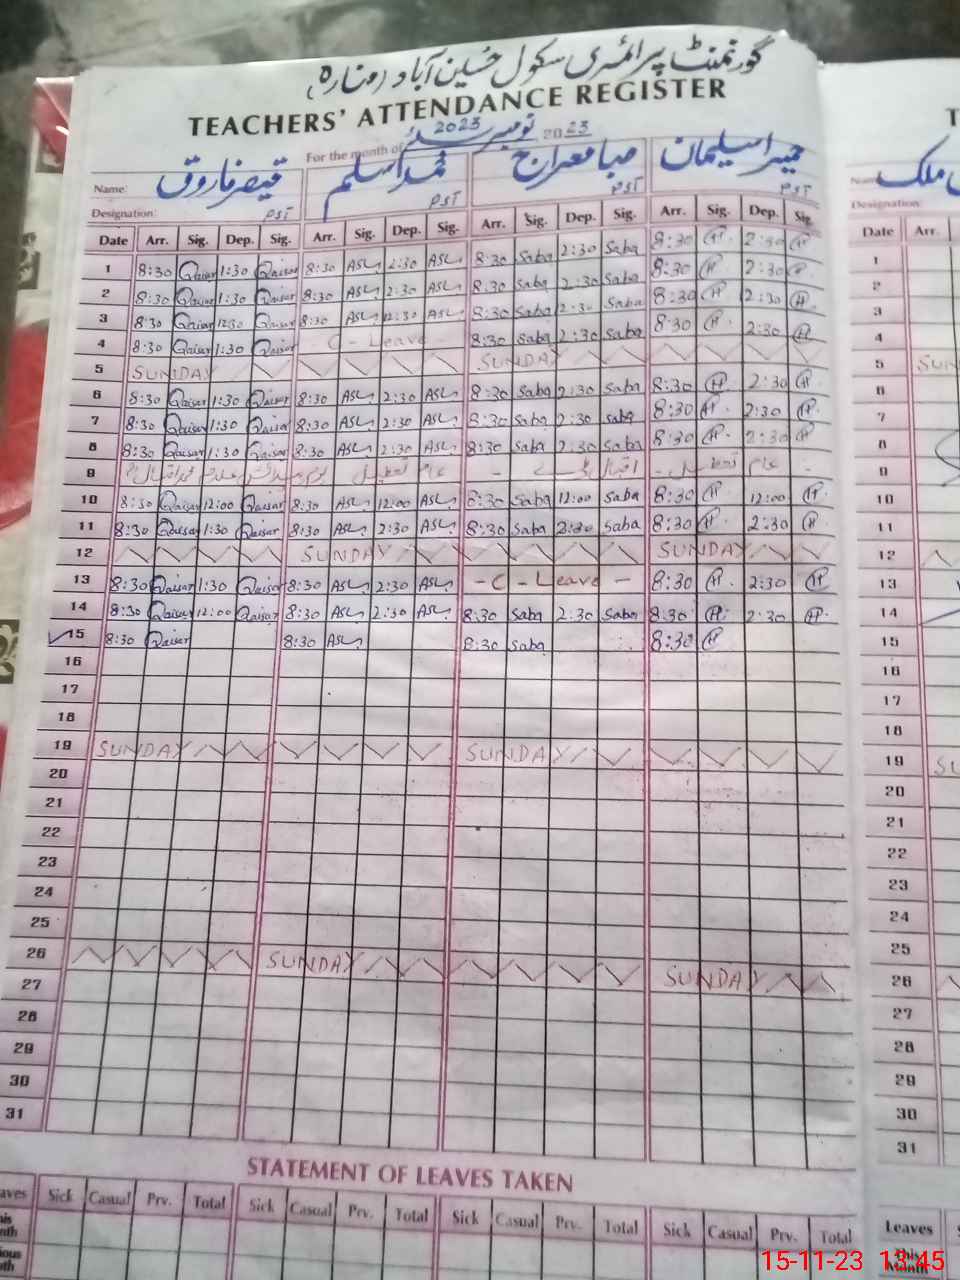 گورنمنٹ پرائمری سکول حسین آباد (منارہ)
TEACHERS' ATTENDANCE REGISTER
For the month of نومبر 2023 2023
Name: قیصر فاروق محمد اسلم صبا معراج سلیمان
Designation: PST PST PST PST
Date Arr. Sig. Dep. Sig. Arr. Sig. Dep. Sig. Arr. Sig. Dep. Sig. Arr. Sig. Dep. Sig.
1 8:30 Qaisar 1:30 Qaisar 8:30 ASL 2:30 ASL 8:30 Saba 2:30 Saba 8:30 H 2:30 H
2 8:30 Qaisar 1:30 Qaisar 8:30 ASL 2:30 ASL 8:30 Saba 2:30 Saba 8:30 H 2:30 H
3 8:30 Qaisar 12:30 Qaisar 8:30 ASL 12:30 ASL 8:30 Saba 2:30 Saba 8:30 H 2:30 H
4 8:30 Qaisar 1:30 Qaisar C - Leave 8:30 Saba 2:30 Saba 8:30 H 2:30 H
5 SUNDAY SUNDAY
6 8:30 Qaisar 1:30 Qaisar 8:30 ASL 2:30 ASL 8:30 Saba 2:30 Saba 8:30 H 2:30 H
7 8:30 Qaisar 1:30 Qaisar 8:30 ASL 2:30 ASL 8:30 Saba 2:30 Saba 8:30 H 2:30 H
8 8:30 Qaisar 1:30 Qaisar 8:30 ASL 2:30 ASL 8:30 Saba 2:30 Saba 8:30 H 2:30 H
9 یوم پیدائش علامہ محمد اقبال عام تعطیل اقبال ڈے عام تعطیل
10 8:30 Qaisar 12:00 Qaisar 8:30 ASL 12:00 ASL 8:30 Saba 12:00 Saba 8:30 H 12:00 H
11 8:30 Qaisar 1:30 Qaisar 8:30 ASL 2:30 ASL 8:30 Saba 2:30 Saba 8:30 H 2:30 H
12 SUNDAY SUNDAY
13 8:30 Qaisar 1:30 Qaisar 8:30 ASL 2:30 ASL - C - Leave - 8:30 H 2:30 H
14 8:30 Qaisar 12:00 Qaisar 8:30 ASL 2:30 ASL 8:30 Saba 2:30 Saba 8:30 H 2:30 H
15 8:30 Qaisar 8:30 ASL 8:30 Saba 8:30 H
16
17
18
19 SUNDAY SUNDAY
20
21
22
23
24
25
26 SUNDAY SUNDAY
27
28
29
30
31
STATEMENT OF LEAVES TAKEN
Sick Casual Prv. Total Sick Casual Prv. Total Sick Casual Prv. Total Sick Casual Prv. Total
ملک
Designation:
Date Arr.
1
2
3
4
5 SUN
6
7
8
9
10
11
12
13
14
15
16
17
18
19 SU
20
21
22
23
24
25
26
27
28
29
30
31
Leaves
This Month
15-11-23 13:45